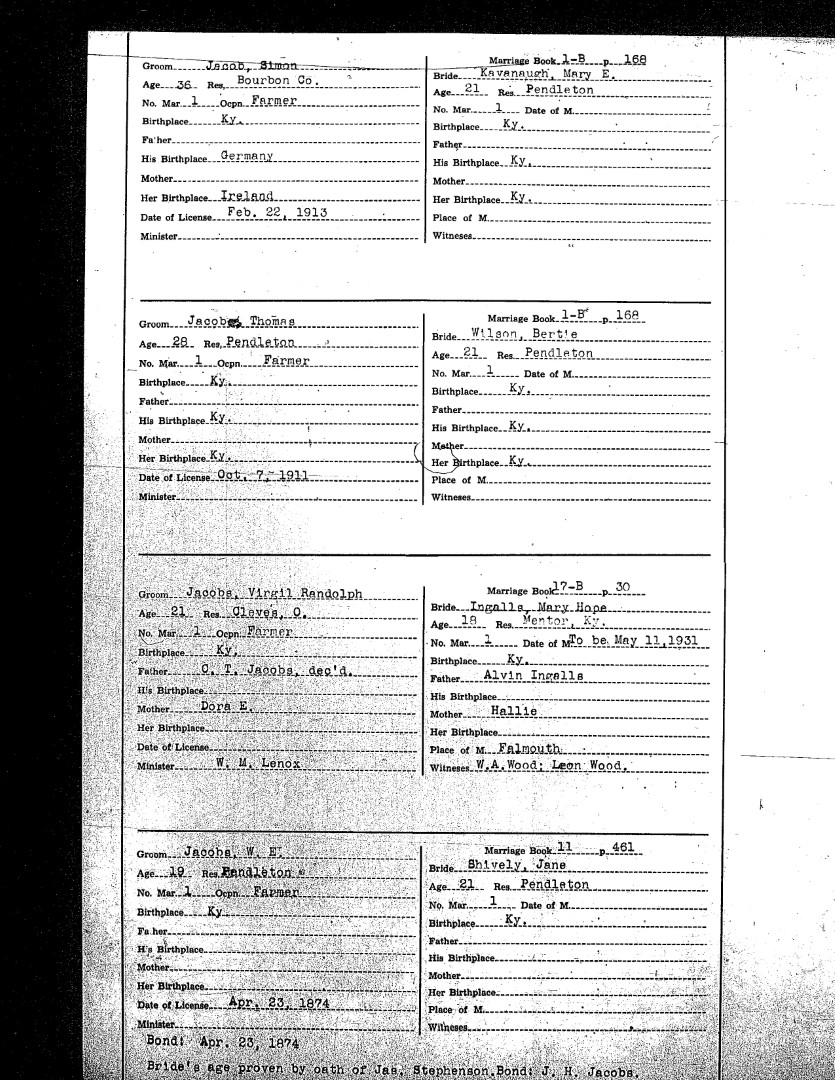 Groom Jacob, Simon
Age 36 Res. Bourbon Co.
No. Mar 1 Ocpn. Farmer
Birthplace Ky.
Father
His Birthplace Germany
Mother
Her Birthplace Ireland
Date of License Feb. 22, 1913
Minister
Marriage Book 1-B p. 168
Bride Kavanaugh, Mary E.
Age 21 Res. Pendleton
No. Mar. 1 Date of M.
Birthplace Ky.
Father
His Birthplace Ky.
Mother
Her Birthplace Ky.
Place of M.
Witneses
Groom Jacobs, Thomas
Age 28 Res. Pendleton
No. Mar. 1 Ocpn. Farmer
Birthplace Ky.
Father
His Birthplace Ky.
Mother
Her Birthplace Ky.
Date of License Oct. 7, 1911
Minister
Marriage Book 1-B p. 168
Bride Wilson, Bertie
Age 21 Res. Pendleton
No. Mar. 1 Date of M.
Birthplace Ky.
Father
His Birthplace Ky.
Mother
Her Birthplace Ky.
Place of M.
Witneses
Groom Jacobs, Virgil Randolph
Age 21 Res. Cleves, O.
No. Mar. 1 Ocpn. Farmer
Birthplace Ky.
Father C. T. Jacobs, dec'd.
His Birthplace
Mother Dora E.
Her Birthplace
Date of License
Minister W. M. Lenox
Marriage Book 17-B p. 30
Bride Ingalls, Mary Hope
Age 18 Res. Mentor, Ky.
No. Mar. 1 Date of M. To be May 11, 1931
Birthplace Ky.
Father Alvin Ingalls
His Birthplace
Mother Hallie
Her Birthplace
Place of M. Falmouth
Witneses W.A.Wood; Leon Wood.
Groom Jacobs, W. E.
Age 19 Res. Pendleton
No. Mar. 1 Ocpn. Farmer
Birthplace Ky
Father
His Birthplace
Mother
Her Birthplace
Date of License Apr. 23, 1874
Minister
Marriage Book 11 p. 461
Bride Shively, Jane
Age 21 Res. Pendleton
No. Mar. 1 Date of M.
Birthplace Ky.
Father
His Birthplace
Mother
Her Birthplace
Place of M.
Witneses
Bond: Apr. 23, 1874
Bride's age proven by oath of Jas. Stephenson.Bond: J. H. Jacobs.